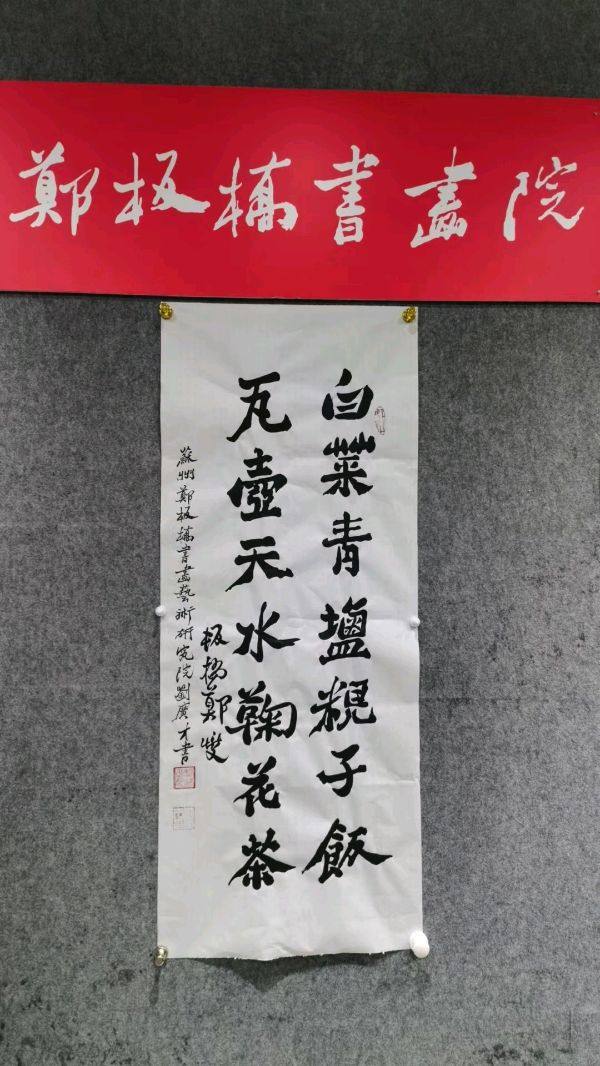 鄭板橋書畫院
白菜青鹽粯子飯
瓦壺天水鞠花茶
板橋鄭燮
蘇州鄭板橋書畫藝術研究院劉廣才書